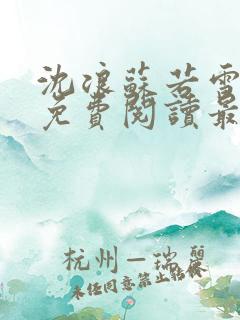 沈浪蘇若雪
免費閱讀最
杭州—瑞麗
未经同意禁止转依